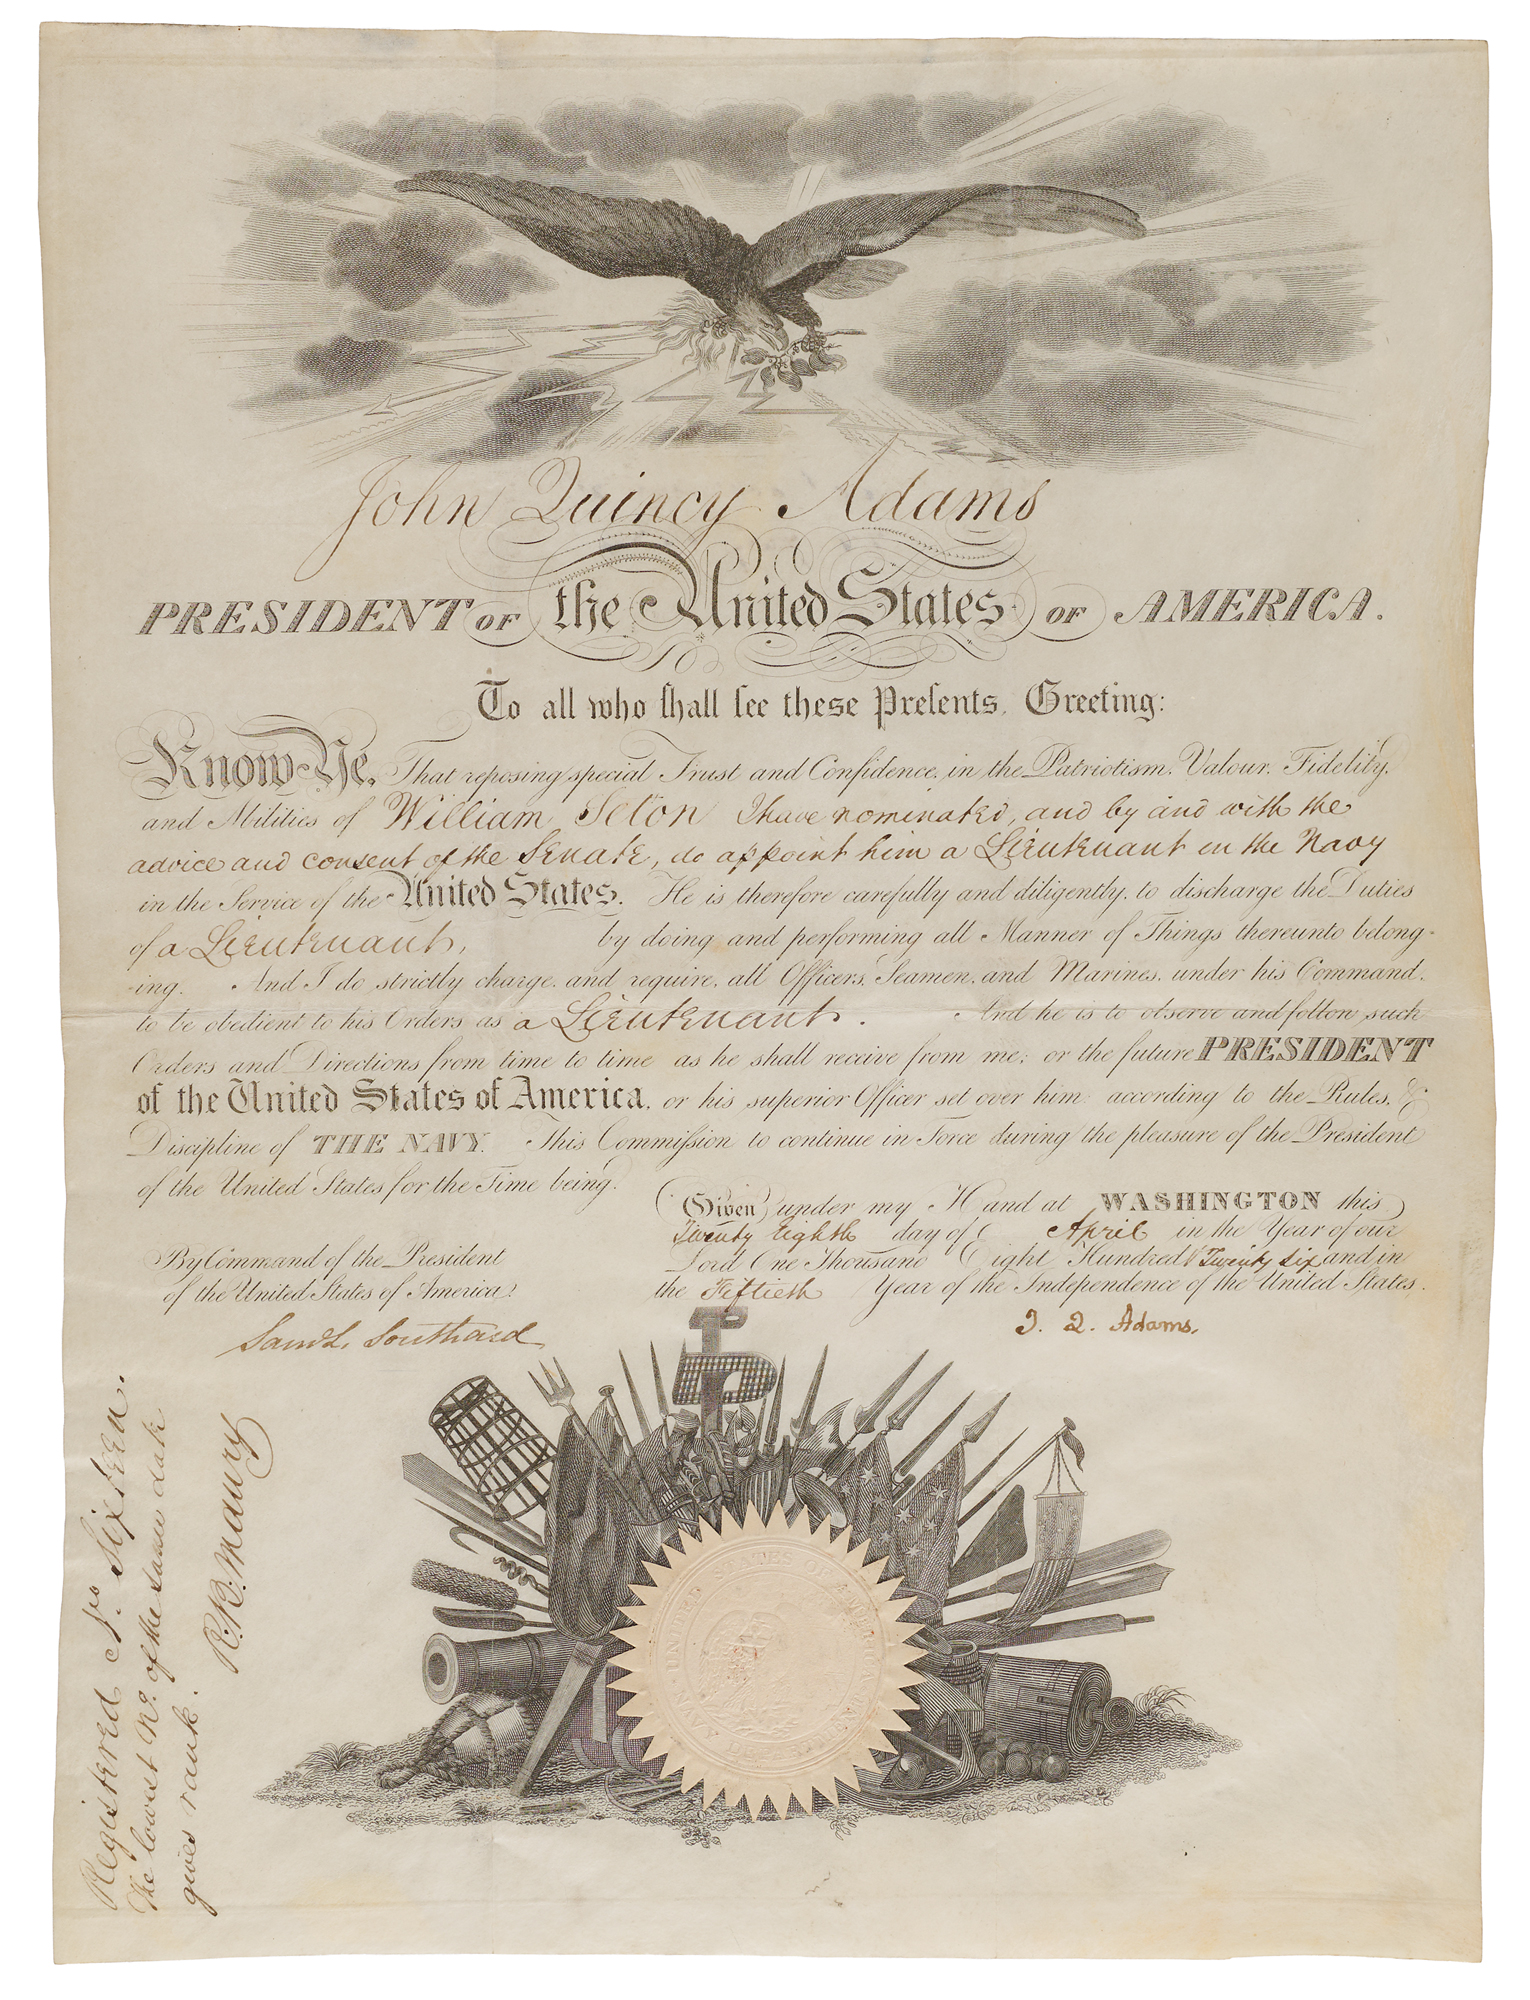 John Quincy Adams
PRESIDENT OF the United States OF AMERICA.
To all who shall see these Presents, Greeting:
Know Ye, That reposing special Trust and Confidence, in the Patriotism, Valour, Fidelity,
and Abilities of William Seton I have nominated, and by and with the
advice and consent of the Senate, do appoint him a Lieutenant in the Navy
in the Service of the United States. He is therefore carefully and diligently, to discharge the Duties
of a Lieutenant, by doing and performing all Manner of Things thereunto belong-
-ing. And I do strictly charge, and require, all Officers, Seamen, and Marines, under his Command,
to be obedient to his Orders as a Lieutenant. And he is to observe and follow such
Orders and Directions from time to time as he shall receive from me; or the future PRESIDENT
of the United States of America, or his superior Officer set over him according to the Rules, &
Discipline of THE NAVY. This Commission to continue in Force during the pleasure of the President
of the United States for the Time being.
Given under my Hand at WASHINGTON this
Twenty Eighth day of April in the Year of our
Lord One Thousand Eight Hundred & Twenty Six and in
the Fiftieth Year of the Independence of the United States.
By Command of the President
of the United States of America.
Saml. L. Southard
J. Q. Adams.
Registered No. Sixteen.
The lowest No. of the same date
gives rank.
UNITED STATES OF AMERICA